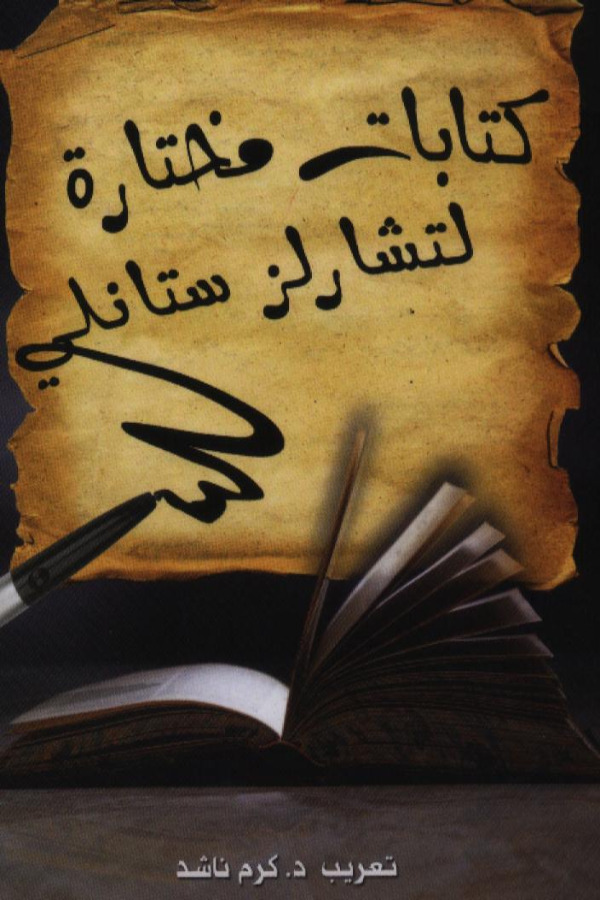 كتابات مختارة
لتشارلز ستانلي
تعريب د. كرم ناشد